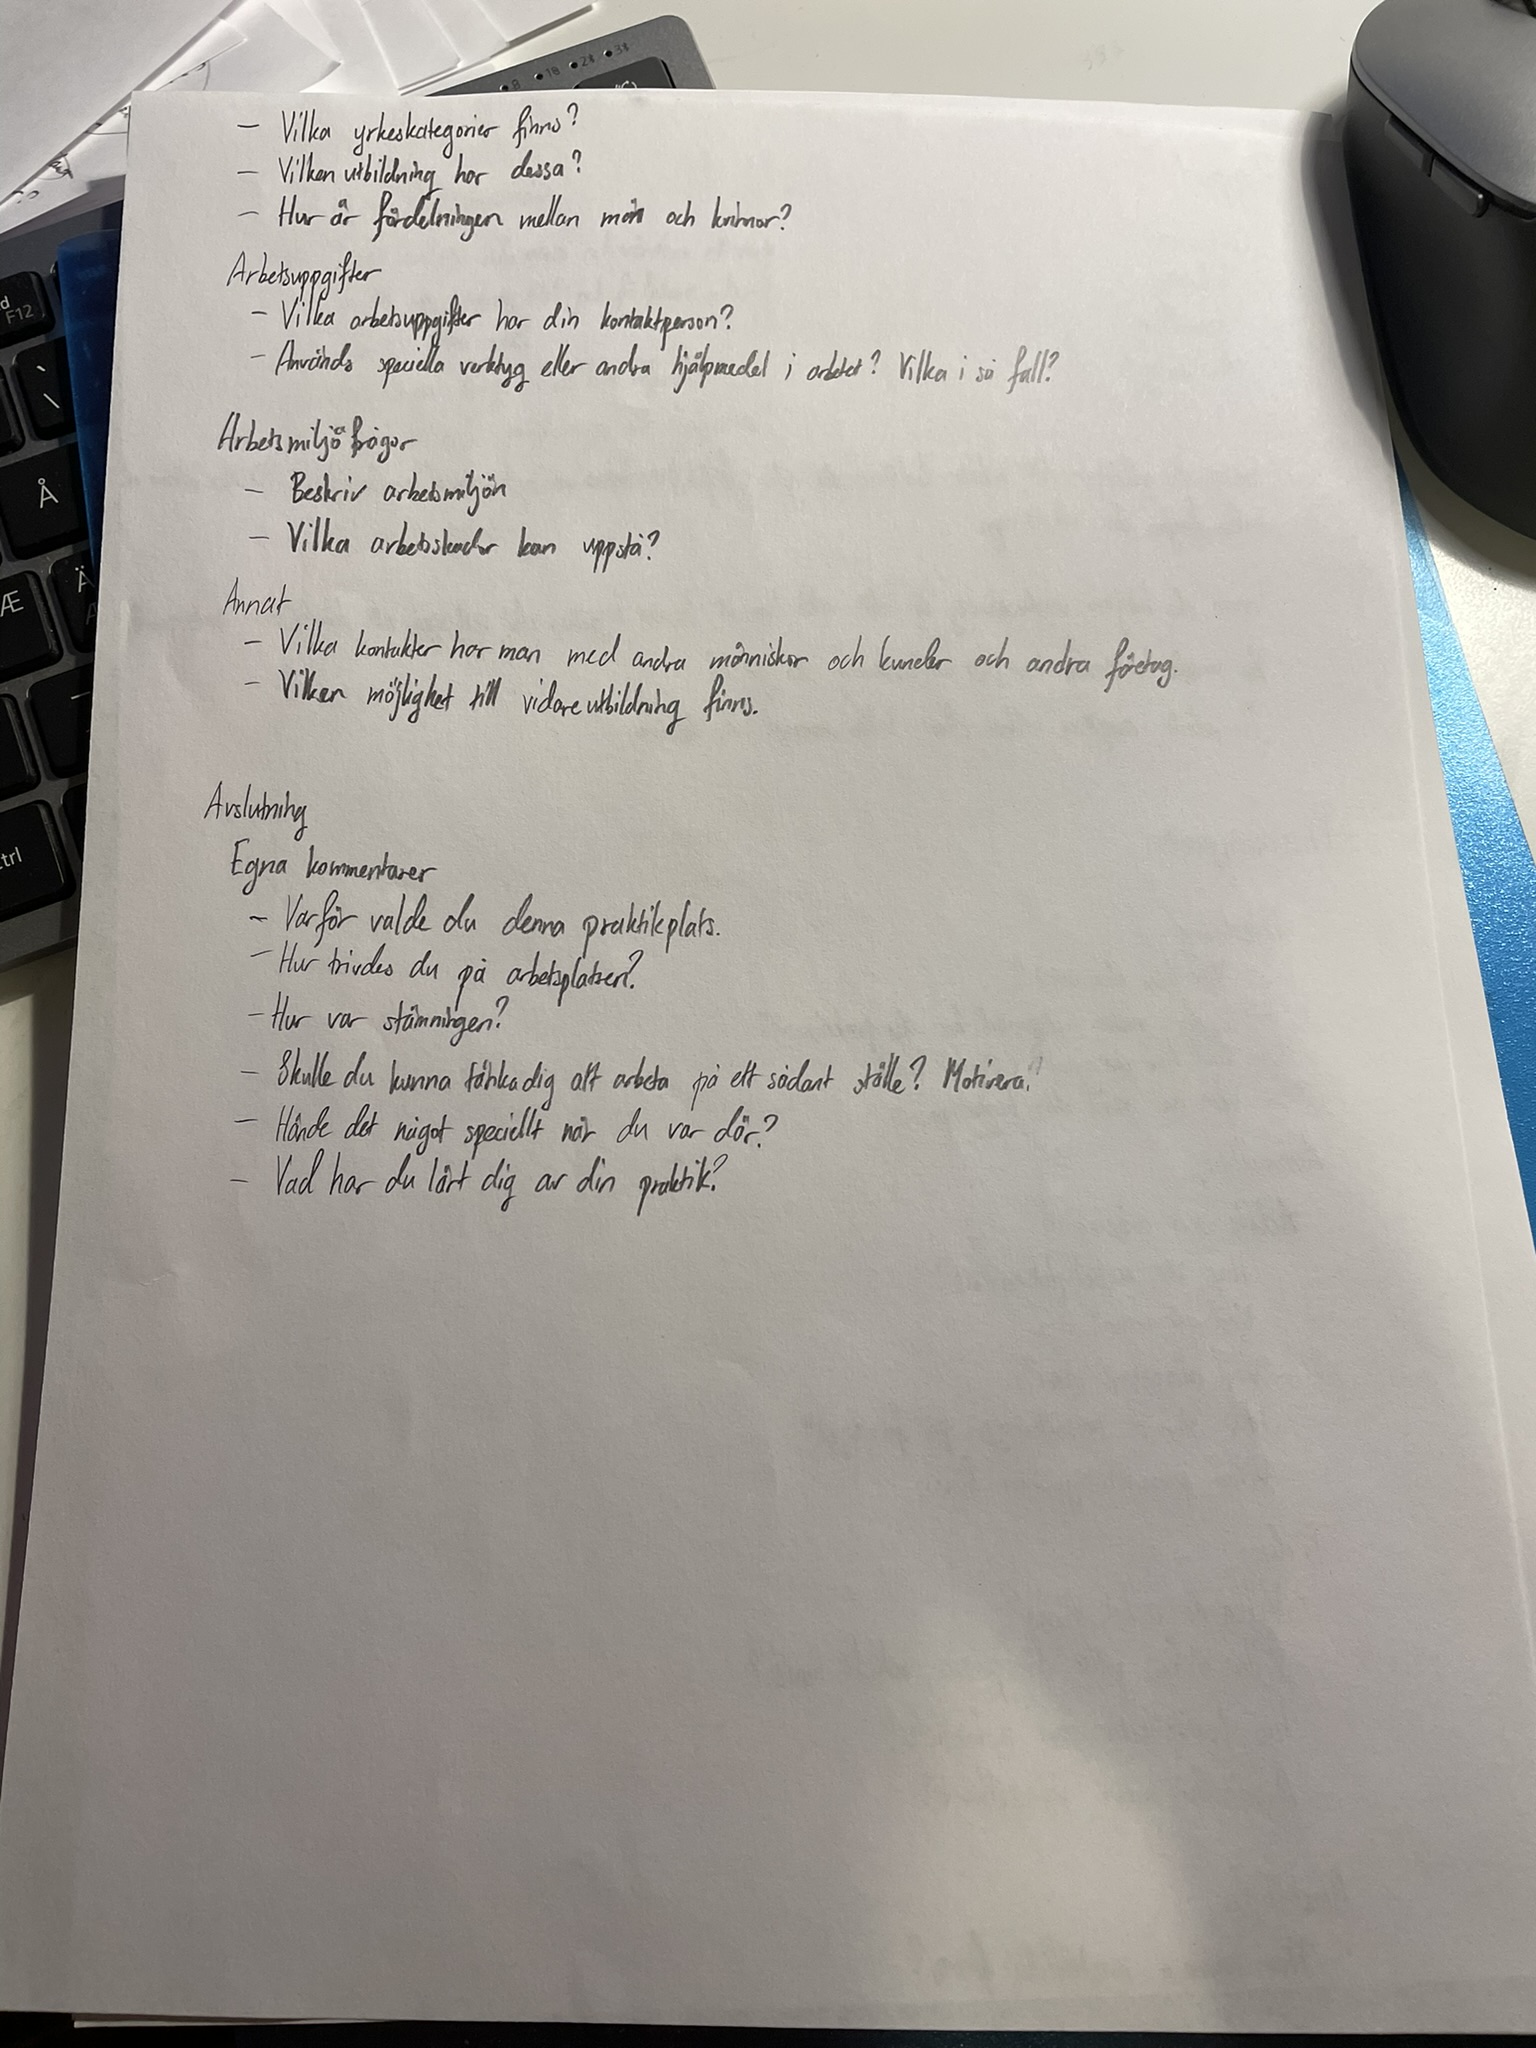 8 18 2* 3*
– Vilka yrkeskategorier finns?
– Vilken utbildning har dessa?
– Hur är fördelningen mellan män och kvinnor?
Arbetsuppgifter
– Vilka arbetsuppgifter har din kontaktperson?
– Används speciella verktyg eller andra hjälpmedel i arbetet? Vilka i så fall?
Arbetsmiljöfrågor
– Beskriv arbetsmiljön
– Vilka arbetsskador kan uppstå?
Annat
– Vilka kontakter har man med andra människor och kunder och andra företag.
– Vilken möjlighet till vidareutbildning finns.
Avslutning
Egna kommentarer
– Varför valde du denna praktikplats.
– Hur trivdes du på arbetsplatsen?
– Hur var stämningen?
– Skulle du kunna tänka dig att arbeta på ett sådant ställe? Motivera.
– Hände det något speciellt när du var där?
– Vad har du lärt dig av din praktik?
F12
\
Å
Æ
Ä
trl